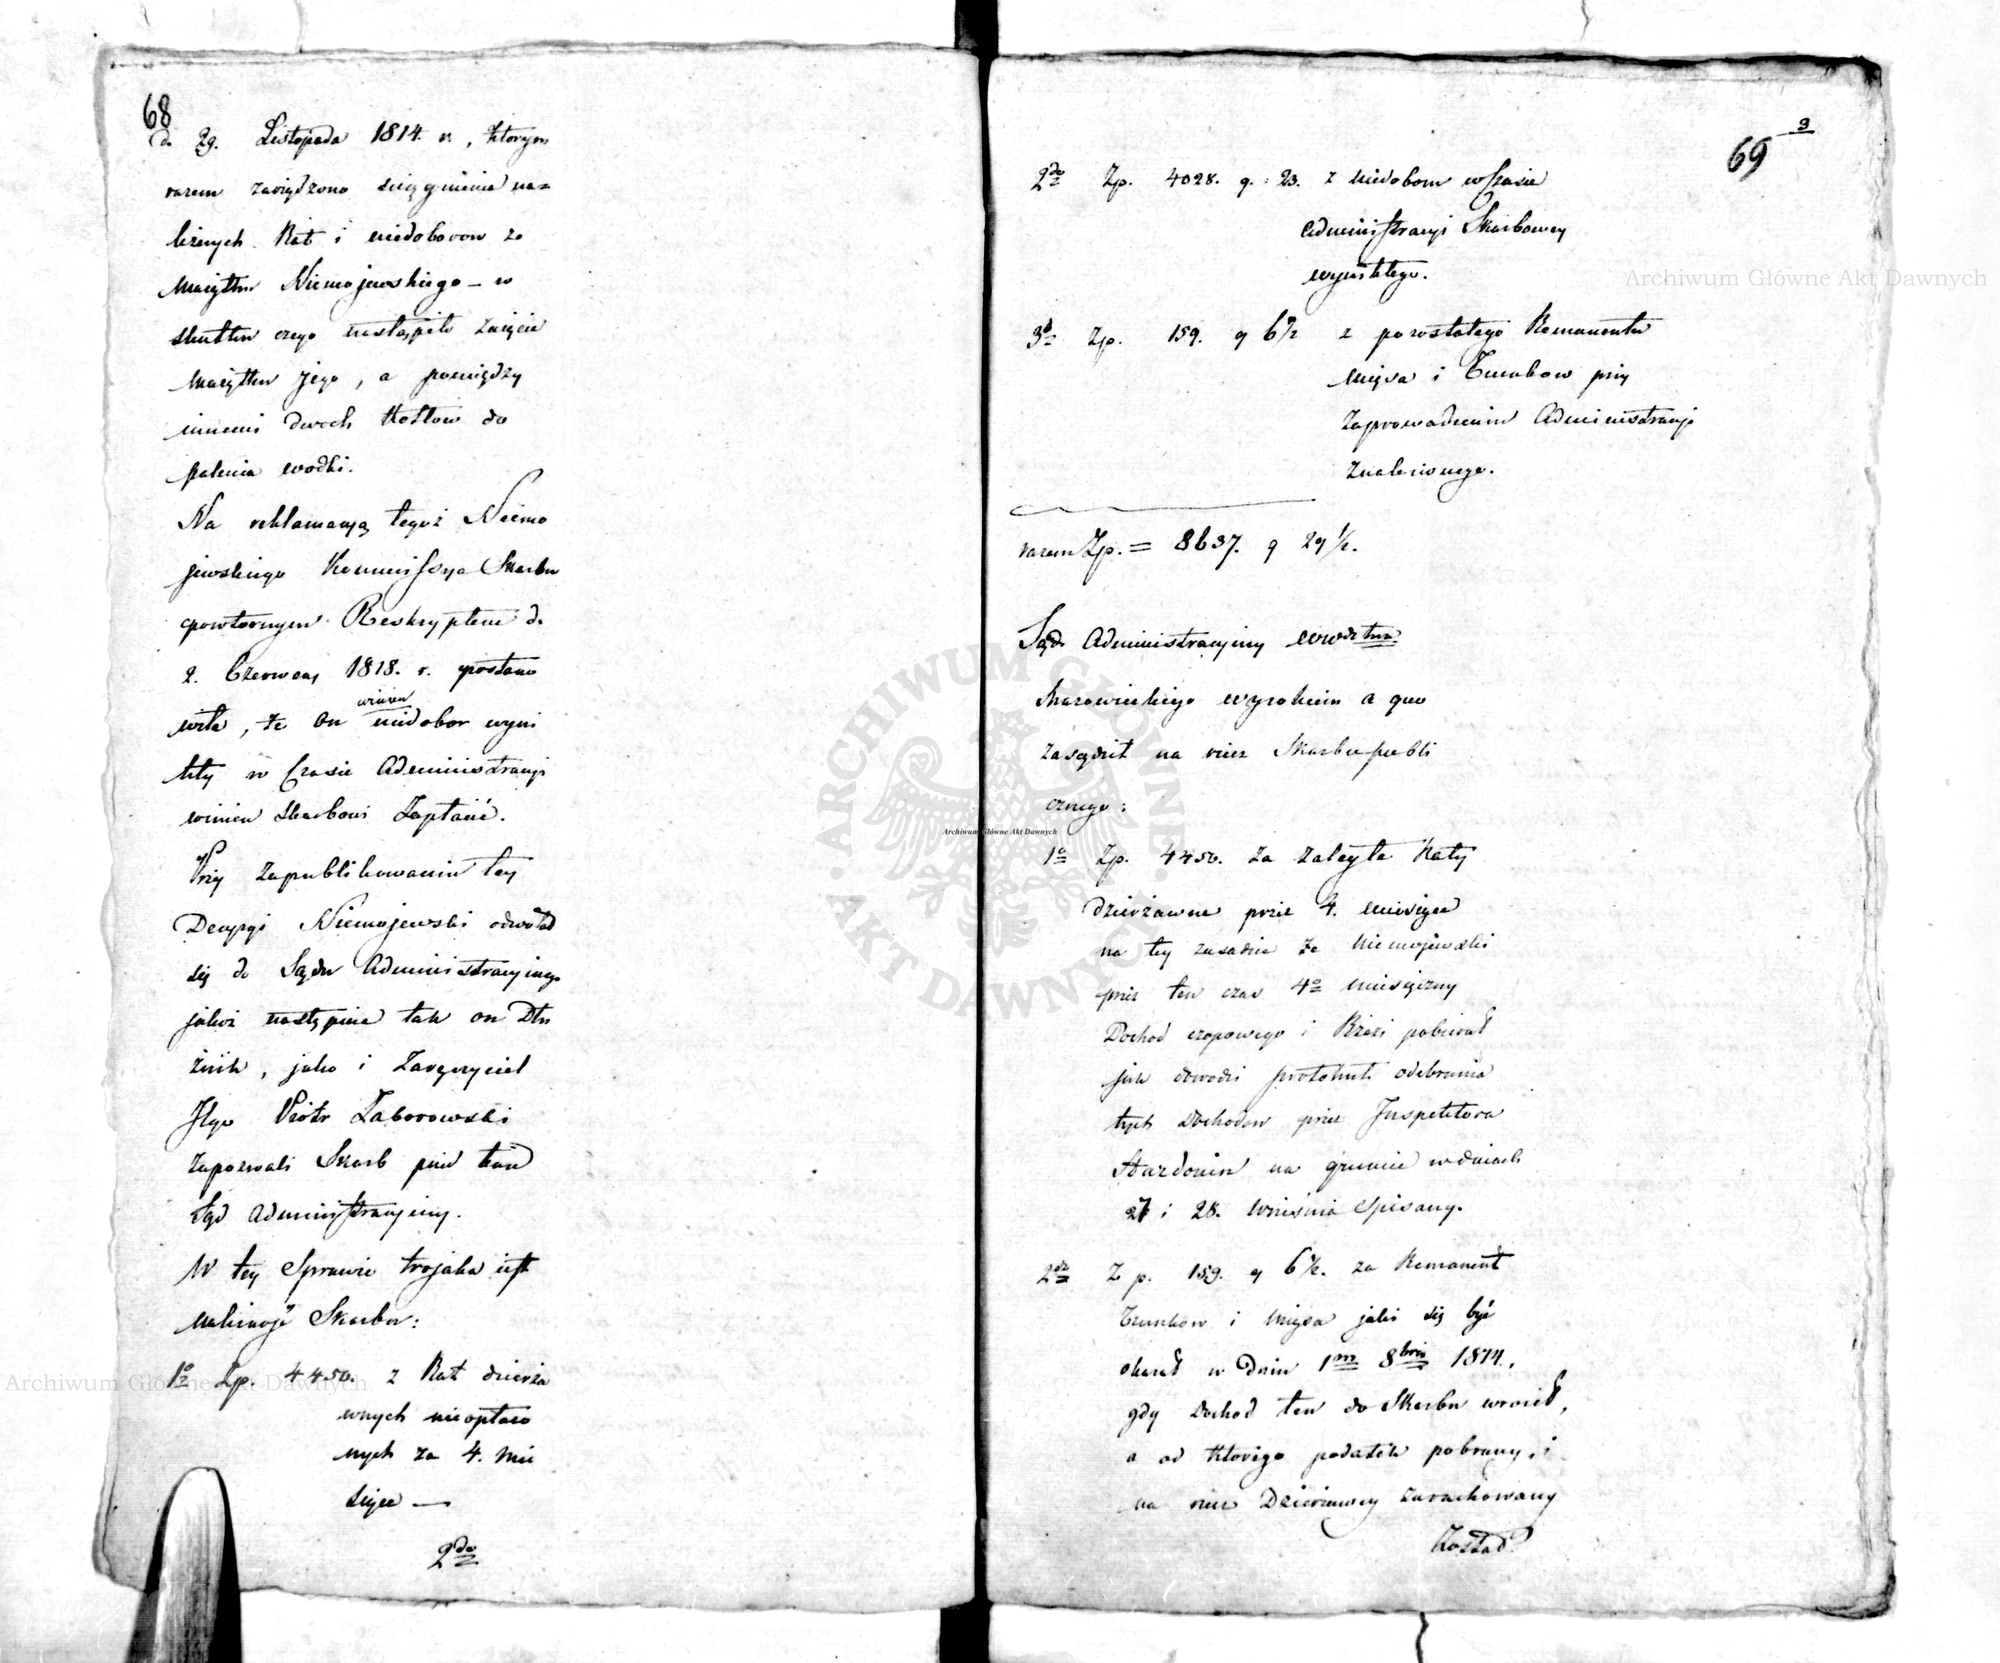 68
do 29. Listopada 1814. r., ktorym
razem zarządzono sciągnienie na=
leżnych Rat i niedoborow ze
Maiątku Niemojewskiego – w
skutku czego nastąpiło Zaięcie
Maiątku Jego, a pomiędzy
innemi dwoch Kotłow do
palenia wodki.
Na reklamacyą tegoż Niemo
jewskiego Kommissya Skarbu
powtornym Reskryptem d.
2. Czerwca, 1818. r. postano
wiła, że On winien niedobor wyni
kły w Czasie Administracyi
winien skarbowi Zapłacić.
Przy Zapublikowaniu tey
Decyzyi Niemojewski odwołał
się do Sądu Administracyinego
jakoż następnie tak on Dłu
żnik, jako i Zaręczyciel
Jego Piotr Zaborowski
Zapozwali Skarb przed tenże
Sąd Administracyiny.
W tey Sprawie trojaka iest
Skarbu:
1o Zp. 4450. z Rat dzierża
wnych nieopłaco
nych za 4. mie
siące —
2do
3
69
2do Zp. 4028. g.: 23. z niedoboru w Czasie
Administracyi Skarbowey
wynikłego.
3o Zp. 159. g 6½ z pozostałego Remanentu
Mięsa i Trunkow przy
Zaprowadzeniu Administracyi
Znalezionego.
razem Zp. = 8637. g 29½.
Sąd Administracyiny Wwdztwa
Mazowieckiego wyrokiem a quo
Zasądził na rzecz Skarbu publi
cznego:
1o Zp. 4450. Za Zaległe Raty
dzierżawne przez 4. miesiące
na tey zasadzie że Niemojewski
przez ten czas 4o miesięczny
Dochod czopowego i Rzezi pobierał
jak dowodzi protokuł odebrania
tych dochodow przez Inspektora
na gruncie w dniach
27 i 28. Września Spisany.
2do Zp. 159. g 6½. za Remanent
Trunkow i Mięsa jaki się być
okazał w Dniu 1m 8bris 1814.,
gdy dochod ten do Skarbu wrocił,
a od ktorego podatek pobrany, i
na rzecz Dzierżawcy zarachowany
Został
Archiwum Główne Akt Dawnych
Archiwum Główne Akt Dawnych
Archiwum Główne Akt Dawnych
ARCHIWUM GŁÓWNE AKT DAWNYCH